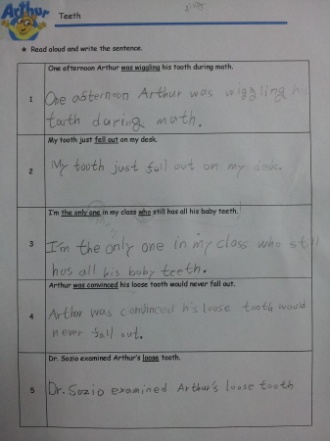 Arthur
Teeth
★ Read aloud and write the sentence.
One afternoon Arthur was wiggling his tooth during math.
1
One afternoon Arthur was wiggling his
tooth during math.
My tooth just fell out on my desk.
2
My tooth just fall out on my desk.
I'm the only one in my class who still has all his baby teeth.
3
I'm the only one in my class who still
has all his baby teeth.
Arthur was convinced his loose tooth would never fall out.
4
Arthur was convinced his loose tooth would
never fall out.
Dr. Sozio examined Arthur's loose tooth.
5
Dr. Sozio examined Arthur's loose tooth